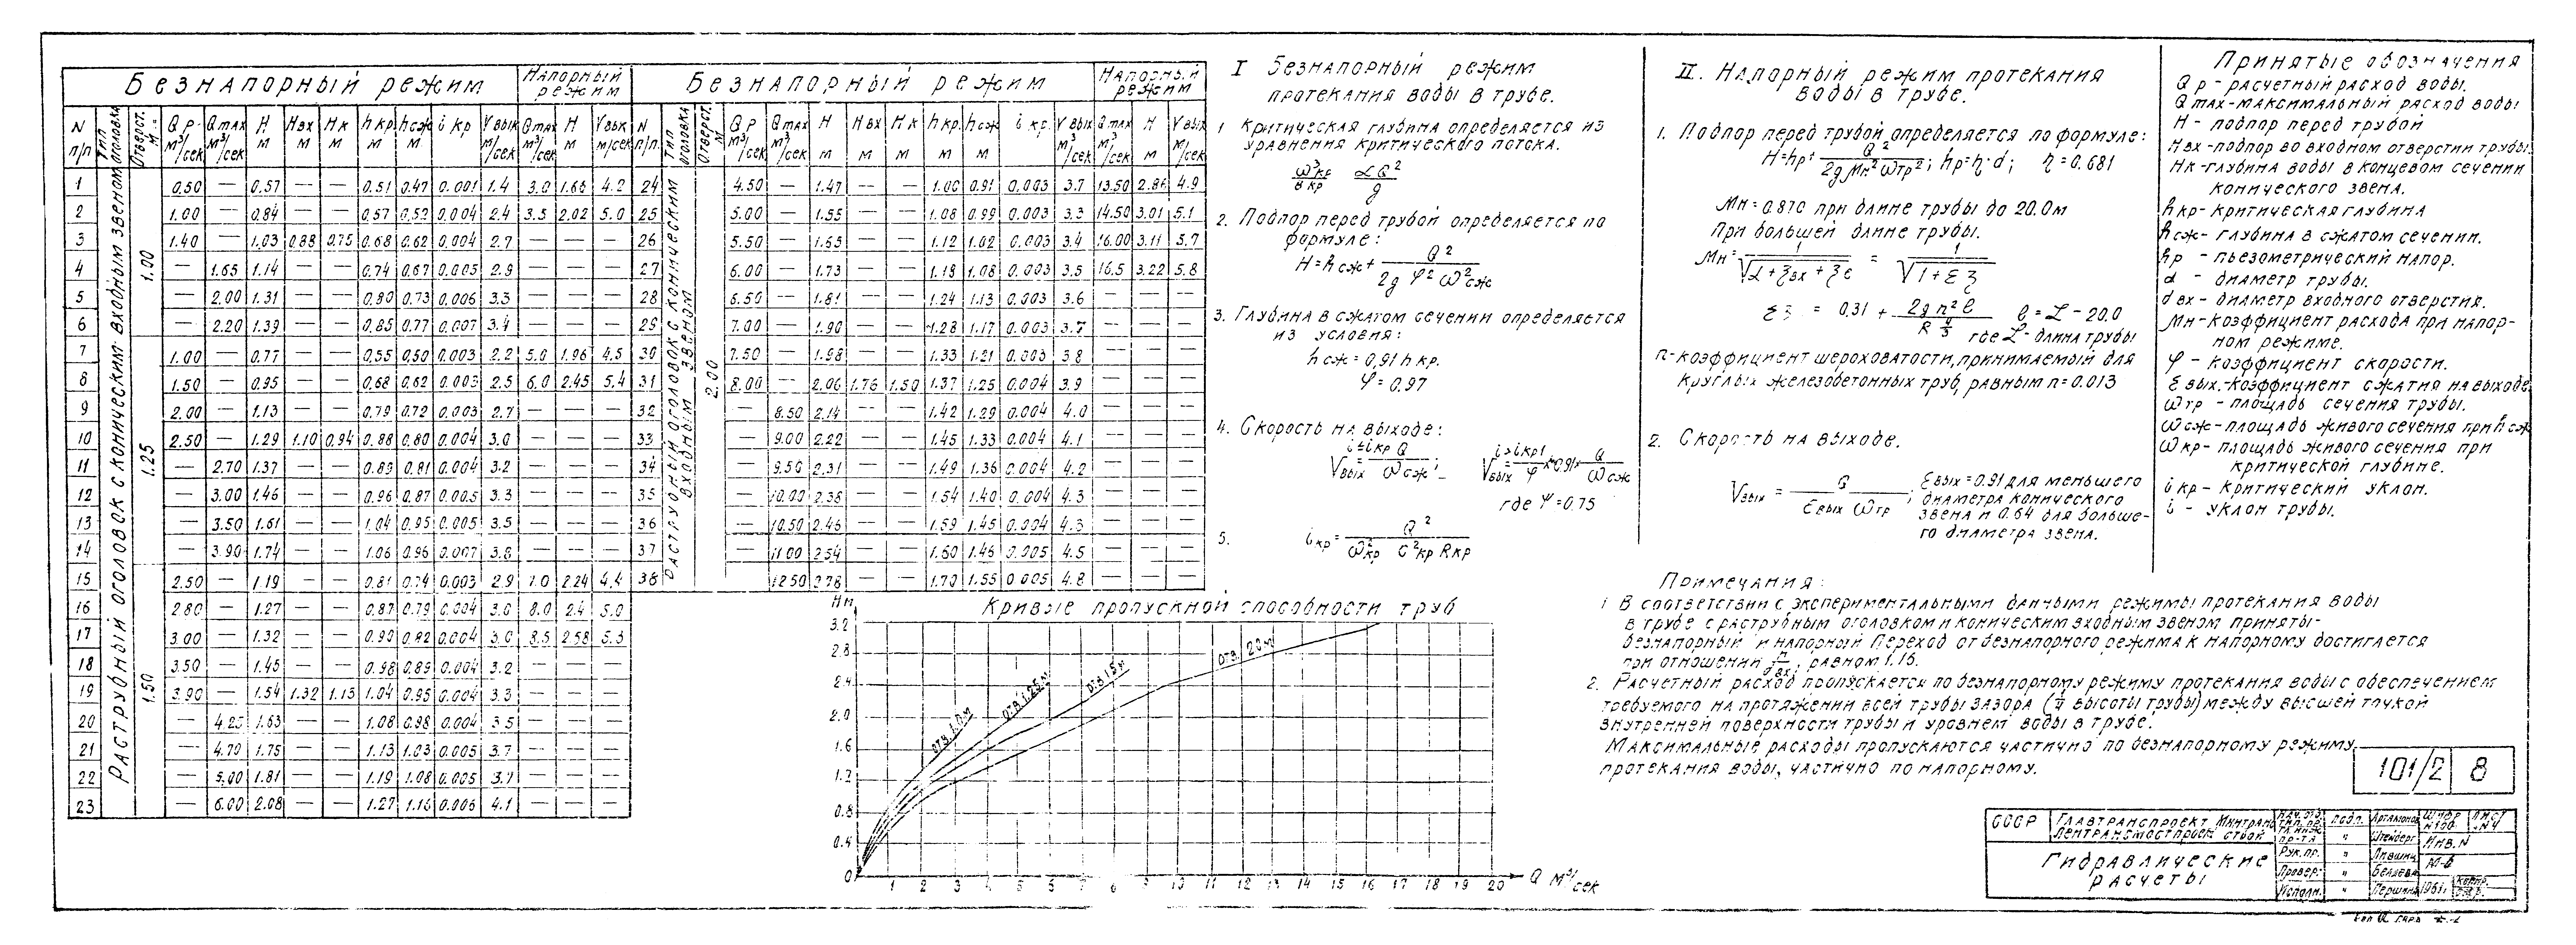 Безнапорный режим Напорный режим Безнапорный режим Напорный режим
N п/п Тип оголовка Отверст. м Q р. м³/сек Q max м³/сек H м H вх м H к м h кр. м h сж м i кр V вых м/сек Q max м³/сек H м V вых м/сек N п/п Тип оголовка Отверст. м Q р м³/сек Q max м³/сек H м H вх м H к м h кр. м h сж м i кр. V вых м/сек Q max м³/сек H м V вых м/сек
Раструбный оголовок с коническим входным звеном
1.00
1.25
1.50
Раструбный оголовок с коническим входным звеном
2.00
1 0.50 — 0.57 — — 0.51 0.47 0.001 1.4 3.0 1.65 4.2 24 4.50 — 1.47 — — 1.00 0.91 0.003 3.7 13.50 2.86 4.9
2 1.00 — 0.84 — — 0.57 0.52 0.004 2.4 3.5 2.02 5.0 25 5.00 — 1.55 — — 1.08 0.99 0.003 3.3 14.50 3.01 5.1
3 1.40 — 1.03 0.88 0.75 0.68 0.62 0.004 2.7 — — — 26 5.50 — 1.65 — — 1.12 1.02 0.003 3.4 16.00 3.11 5.7
4 — 1.65 1.14 — — 0.74 0.67 0.005 2.9 — — — 27 6.00 — 1.73 — — 1.18 1.08 0.003 3.5 16.5 3.22 5.8
5 — 2.00 1.31 — — 0.80 0.73 0.006 3.3 — — — 28 6.50 — 1.81 — — 1.24 1.13 0.003 3.6 — — —
6 — 2.20 1.39 — — 0.85 0.77 0.007 3.4 — — — 29 7.00 — 1.90 — — 1.28 1.17 0.003 3.7 — — —
7 1.00 — 0.77 — — 0.55 0.50 0.003 2.2 5.0 1.96 4.5 30 7.50 — 1.98 — — 1.33 1.21 0.003 3.8 — — —
8 1.50 — 0.95 — — 0.68 0.62 0.003 2.5 6.0 2.45 5.4 31 8.00 — 2.06 1.76 1.50 1.37 1.25 0.004 3.9 — — —
9 2.00 — 1.13 — — 0.79 0.72 0.003 2.7 — — — 32 — 8.50 2.14 — — 1.42 1.29 0.004 4.0 — — —
10 2.50 — 1.29 1.10 0.94 0.88 0.80 0.004 3.0 — — — 33 — 9.00 2.22 — — 1.45 1.33 0.004 4.1 — — —
11 — 2.70 1.37 — — 0.89 0.81 0.004 3.2 — — — 34 — 9.50 2.31 — — 1.49 1.36 0.004 4.2 — — —
12 — 3.00 1.46 — — 0.96 0.87 0.005 3.3 — — — 35 — 10.00 2.38 — — 1.54 1.40 0.004 4.3 — — —
13 — 3.50 1.61 — — 1.04 0.95 0.005 3.5 — — — 36 — 10.50 2.46 — — 1.59 1.45 0.004 4.3 — — —
14 — 3.90 1.74 — — 1.06 0.96 0.007 3.8 — — — 37 — 11.00 2.54 — — 1.60 1.46 0.005 4.5 — — —
15 2.50 — 1.19 — — 0.81 0.74 0.003 2.9 7.0 2.24 4.4 38 — 12.50 2.78 — — 1.70 1.55 0.005 4.8 — — —
16 2.80 — 1.27 — — 0.87 0.79 0.004 3.0 8.0 2.4 5.0
17 3.00 — 1.32 — — 0.90 0.82 0.004 3.0 8.5 2.58 5.3
18 3.50 — 1.45 — — 0.98 0.89 0.004 3.2 — — —
19 3.90 — 1.54 1.32 1.13 1.04 0.95 0.004 3.3 — — —
20 — 4.25 1.63 — — 1.08 0.98 0.004 3.5 — — —
21 — 4.70 1.75 — — 1.13 1.03 0.005 3.7 — — —
22 — 5.00 1.81 — — 1.19 1.08 0.005 3.7 — — —
23 — 6.00 2.08 — — 1.27 1.16 0.006 4.1 — — —
Кривые пропускной способности труб
Hм
3.2
2.8
2.4
2.0
1.6
1.2
0.8
0.4
0
отв. 1.0м
отв. 1.25м
отв. 1.5м
отв. 2.0м
1 2 3 4 5 6 7 8 9 10 11 12 13 14 15 16 17 18 19 20 Q м³/сек
I Безнапорный режим
протекания воды в трубе.
1 Критическая глубина определяется из
уравнения критического потока.
ω³кр / В кр αQ² / g
2. Подпор перед трубой определяется по
формуле:
H = h сж + Q² / 2g φ² ω²сж
3. Глубина в сжатом сечении определяется
из условия:
h сж = 0,91 h кр.
φ = 0.97
4. Скорость на выходе:
i ≤ i кр i > i кр
V вых = Q / ω сж ;
где Ψ = 0.75
5. i кр = Q² / ω²кр C²кр R кр
II. Напорный режим протекания
воды в трубе.
1. Подпор перед трубой определяется по формуле:
H = hр + Q² / 2g Mн² ωтр² ; hр = η·d ; η = 0.681
Mн = 0.870 при длине трубы до 20.0м
При большей длине трубы.
Mн = 1 / √α + ξвх + ξℓ = 1 / √1 + Σξ
Σξ = 0.31 + 2g n² ℓ / R ⁴⁄₃ ℓ = L − 20.0
где L - длина трубы
n - коэффициент шероховатости, принимаемый для
круглых железобетонных труб, равным n = 0.013
2. Скорость на выходе.
V вых = Q / Ɛ вых ω тр ; Ɛ вых = 0.91 для меньшего
диаметра конического
звена и 0.64 для больше-
го диаметра звена.
Принятые обозначения
Q р - расчетный расход воды.
Q max - максимальный расход воды
H - подпор перед трубой
H вх - подпор во входном отверстии трубы.
Hк - глубина воды в концевом сечении
конического звена.
h кр - критическая глубина
h сж - глубина в сжатом сечении.
hр - пьезометрический напор.
d - диаметр трубы.
d вх - диаметр входного отверстия.
Mн - коэффициент расхода при напор-
ном режиме.
φ - коэффициент скорости.
Ɛ вых. - коэффициент сжатия на выходе
ω тр - площадь сечения трубы.
ω сж - площадь живого сечения при h сж
ω кр - площадь живого сечения при
критической глубине.
i кр - критический уклон.
i - уклон трубы.
Примечания:
1 В соответствии с экспериментальными данными режимы протекания воды
в трубе с раструбным оголовком и коническим входным звеном приняты-
безнапорный и напорный Переход от безнапорного режима к напорному достигается
при отношении H/dвх, равном 1.15.
2. Расчетный расход пропускается по безнапорному режиму протекания воды с обеспечением
требуемого на протяжении всей трубы зазора (¼ высоты трубы) между высшей точкой
внутренней поверхности трубы и уровнем воды в трубе.
Максимальные расходы пропускаются частично по безнапорному режиму
протекания воды, частично по напорному.
101/2 8
СССР Главтранспроект Минтрансстрой
Лентрансмостпроект
Гидравлические
расчеты
Нач. отд. подп. Артамонов
Гл. инж. пр-та " Штейнберг Инв. N
Рук. пр. " Лившиц
Провер. " Беляева
Исполн. " Першина 1961г.